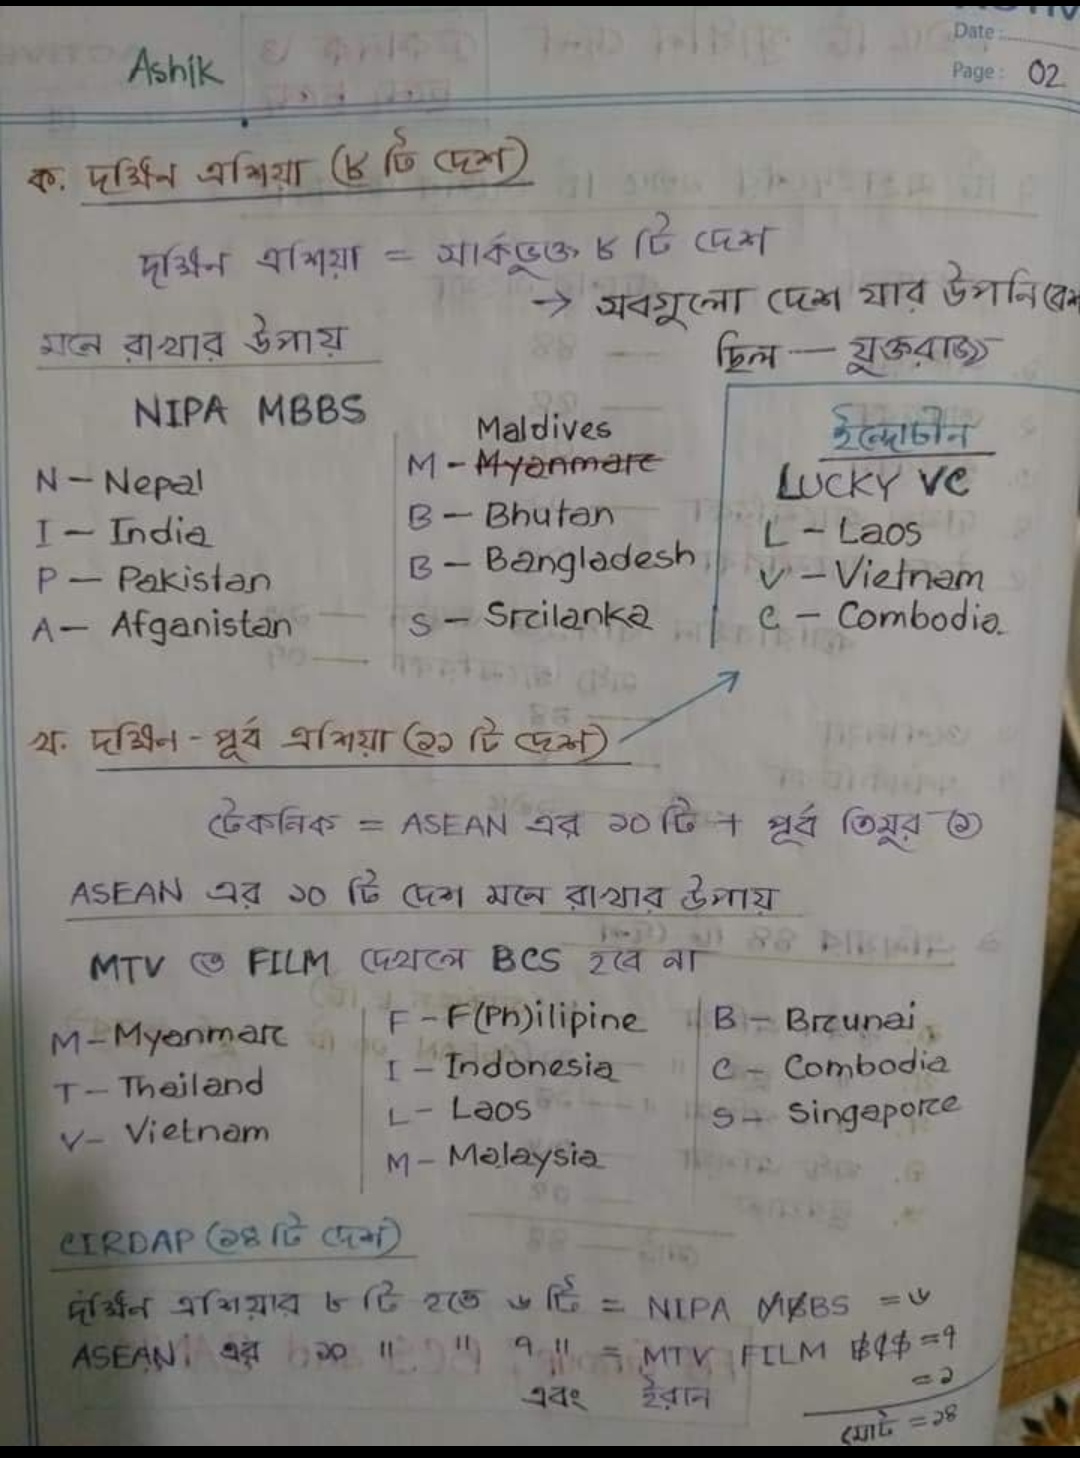 Ashik
Date:
Page: 02
ক. দক্ষিন এশিয়া (৮ টি দেশ)
দক্ষিন এশিয়া = সার্কভুক্ত ৮ টি দেশ
→ সবগুলো দেশ যার উপনিবেশ
ছিল — যুক্তরাজ্য
মনে রাখার উপায়
NIPA MBBS
N – Nepal
I – India
P – Pakistan
A – Afganistan
Maldives
M – Myanmar
B – Bhutan
B – Bangladesh
S – Srilanka
ইন্দোচীন
LUCKY VC
L – Laos
V – Vietnam
C – Combodia
খ. দক্ষিন - পূর্ব এশিয়া (১১ টি দেশ)
টেকনিক = ASEAN এর ১০ টি + পূর্ব তিমুর (১)
ASEAN এর ১০ টি দেশ মনে রাখার উপায়
MTV তে FILM দেখলে BCS হবে না
M – Myanmar
T – Thailand
V – Vietnam
F – F(Ph)ilipine
I – Indonesia
L – Laos
M – Malaysia
B – Brunai
C – Combodia
S – Singapore
CIRDAP (১৪ টি দেশ)
দক্ষিন এশিয়ার ৮ টি হতে ৬ টি = NIPA MBBS = ৬
ASEAN এর ১০ " " ৭ " = MTV FILM BCS = ৭
এবং ইরান = ১
মোট = ১৪